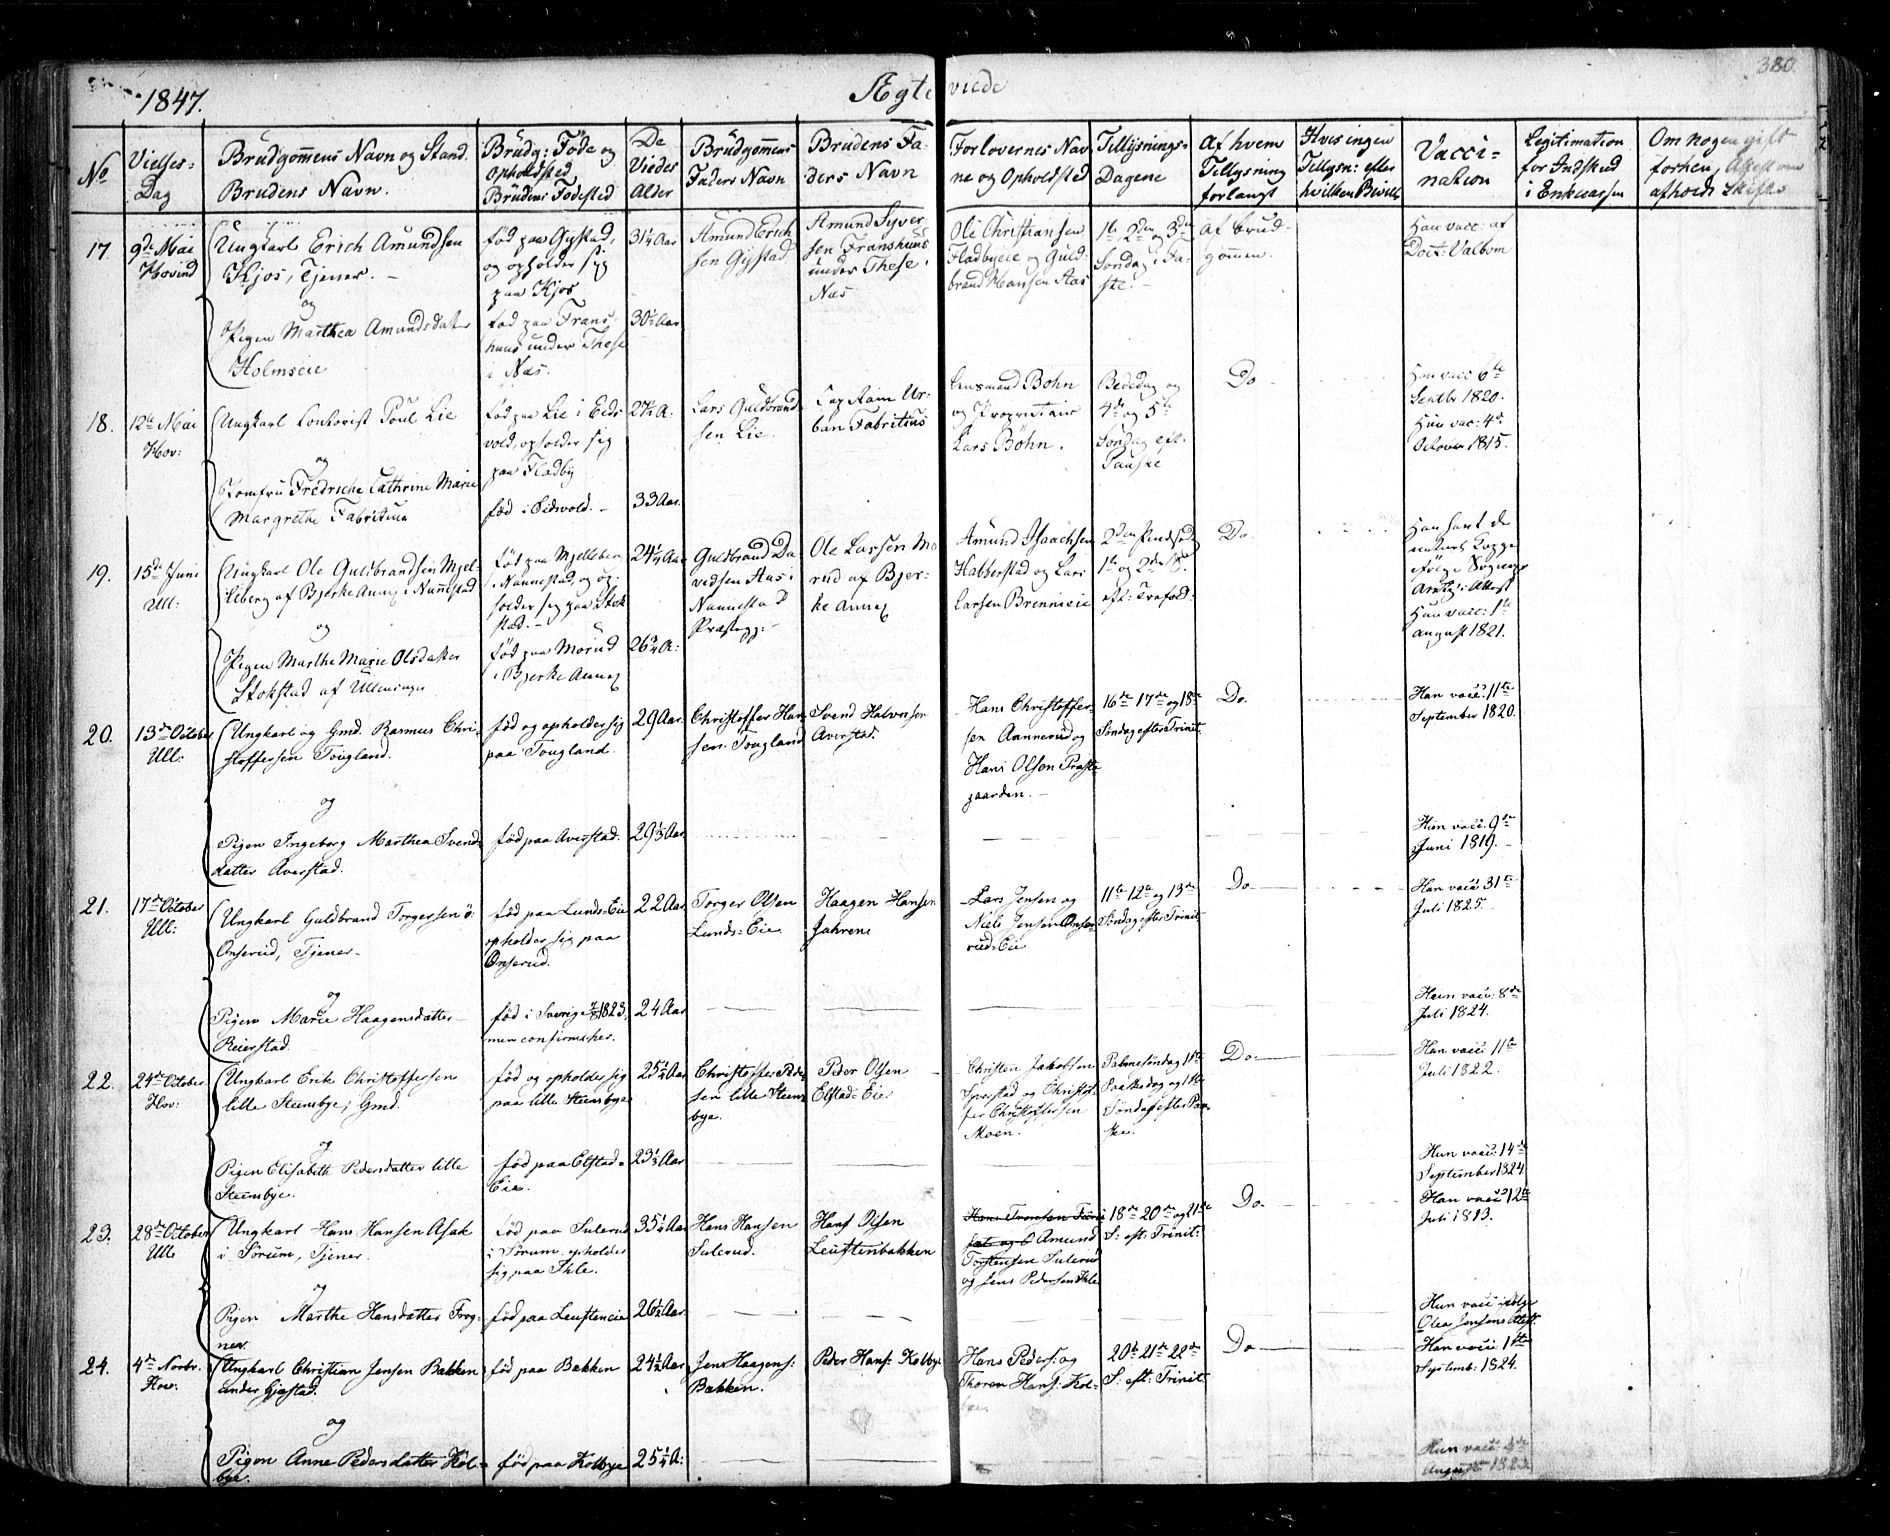 1847.
Ægteviede
380.
No
Vielses-
Dag
Brudgommens Navn og Stand.
Brudens Navn.
Brudg: Føde og
Opholdsted
Brudens Fødested
De
Viedes
Alder
Brudgommens
Faders Navn
Brudens Fa-
ders Navn
Forlovernes Nav
ne og Opholdsted
Tillysnings-
Dagene
Af hvem
Tillysning
forlangt
Hvis ingen
Tillysn: efter
hvilken Bevill:
Vacci-
nation
Legitimation
for Indskud
i Enkecassen
Om nogen gift
forhen, Attest om
afholdt Skifte
17.
9de Mai
Hovind
Ungkarl Erich Amundsen
Kjos, Tjener. -
og
Pigen Marthea Amundsdatter
Holmseie
fød paa Gystad,
og opholder sig
paa Kjos
fød paa Frans-
huus under These
i Næs.
31 1/4 Aar
30 1/2 Aar
Amund Erich
sen Gystad
Amund Syver
sen Franshuus
under These i
Næs
Ole Christiansen
Fladbyeie og Guld-
brand Hansen Aas
1te, 2den og 3die
Søndag i Fa-
ste. -
af Brud-
gommen.
Han vacc. af
Doct: Valbom
18.
12te Mai
Hov:
Ungkarl Poul Lie
og
Jomfru Fredriche Cathrine Marie
Margrethe Fabritius
fød paa Lie i Eids
vold, opholder sig
paa Fladby
fød i Eidsvold. -
27 1/2 A.
33 Aar.
Lars Guldbrand
sen Lie.
Ur-
ban Fabritius
Lensmand Bøhn
og Proprietair
Lars Bøhn.
Bededag og
4de og 5te
Søndag eft.
Paaske
Do
Han vacc 6te
Septbr 1820.
Hun vac: 4de
October 1815.
19.
15de Juni
Ull:
Ungkarl Ole Guldbrandsen Mjel-
leberg af Bjerke Annex i Nannestad
og
Pigen Marthe Marie Olsdatter
Stokstad af Ullensager
fød paa Mjelleberg
i Nannestad, og op-
holder sig paa Stok
stad. -
fød paa Morud
i Bjerke Annex
24 1/4 Aar
26 3/4 A:
Guldbrand Da
vidsen Aas i
Nannestad
Præstegj: -
Ole Larsen Mo
rud af Bjer-
ke Annex
Amund Isaachsen
Habberstad og Lars
Larsen Brenneie
2den Pindsed.
1te og 2den S.
eft: Trefold.
Do.
Han havt de
naturl. Kopper
ifølge Sogne
Attest
Hun vacc: 1te
August 1821.
20.
13de October
Ull:
Ungkarl og Gmd. Rasmus Chri-
stoffersen Tougland.
og
Pigen Ingeborg Marthea Svends
datter Averstad.
fød og opholder sig
paa Tougland.
fød paa Averstad.
29 Aar.
29 1/3 Aar
Christoffer Han
sen Tougland
Svend Halvorsen
Averstad.
Hans Christoffer-
sen Aannerud og
Hans Olsen Præste
gaarden. -
16de 17de og 18de
Søndag efter Trinit.
Do.
Han vacc: 11te
September 1820.
Hun vacc: 9de
Juni 1819. -
21.
17de October
Ull:
Ungkarl Guldbrand Torgersen
Onserud, Tjener-
og
Pigen Marie Haagensdatter
Reierstad.
fød paa Lunds-Eie
opholder sig paa
Onserud.
fød i Sverige 1823,
men confirm: her.
22 Aar
24 Aar
Torger Olsen
Lunds-Eie
Haagen Hansen
Jahren
Lars Jensen og
Niels Jensen Onse-
rud-Eie
11te 12te og 13de
Søndag efter Trinit.
Do.
Han vacc: 31te
Juli 1825.
Hun vacc: 8de
Juli 1824.
22.
24de October
Hov:
Ungkarl Erik Christoffersen
lille Steensbye, Gmd.
og
Pigen Elisabeth Pedersdatter lille
Steensbye.
fød og opholder sig
paa lille Steensbye
fød paa Elstad-
Eie.
25 1/4 Aar
23 1/3 Aar
Christoffer Peder
sen lille Steens
bye.
Peder Olsen
Elstad-Eie
Christen Jakobsen
og Christof-
fer Christoffersen
Moen.
Palmesøndag 1ste
Paaskedag og 1ste
Søndag efter Paa-
ske.
Do.
Han vacc: 11te
Juli 1822.
Hun vacc: 14de
September 1824
23.
28de October
Ull
Ungkarl Hans Hansen Asak
i Sørum, Tjener.
og
Pigen Marthe Hansdatter Frog-
ner.
fød paa Sulerud
i Sørum. opholder
sig paa Ihle.
fød paa Leustenie
35 1/4 Aar
26 1/2 Aar
Hans Hansen
Sulerud.
Hans Olsen
Leustenbakken
Amund
Torstensen Sulerud
og Jens Pedersen Ihle
18de 20de og 21de
S: eft: Trinit:
Do.
Han vacc: 12te
Juli 1813.
Hun vacc: ifølge
Olea Jensens Attest.
24.
4de Novbr.
Hov.
Ungkarl Christian Jensen Bakken
under Gjestad.
og
Pigen Anne Pedersdatter Kol-
bye.
fød paa Bakken
fød paa Kolbye
24 1/2 Aar
25 1/4 A:
Jens Haagens:
Bakken.
Peder Hans: Kolbye
Hans Peders: og
Thoren Hans: Kol-
bye.
20de 21de 22de
S: eft: Trinit:
Do
Han vacc: 1ste
Septemb: 1824.
Hun vacc: 4de
August 1823.